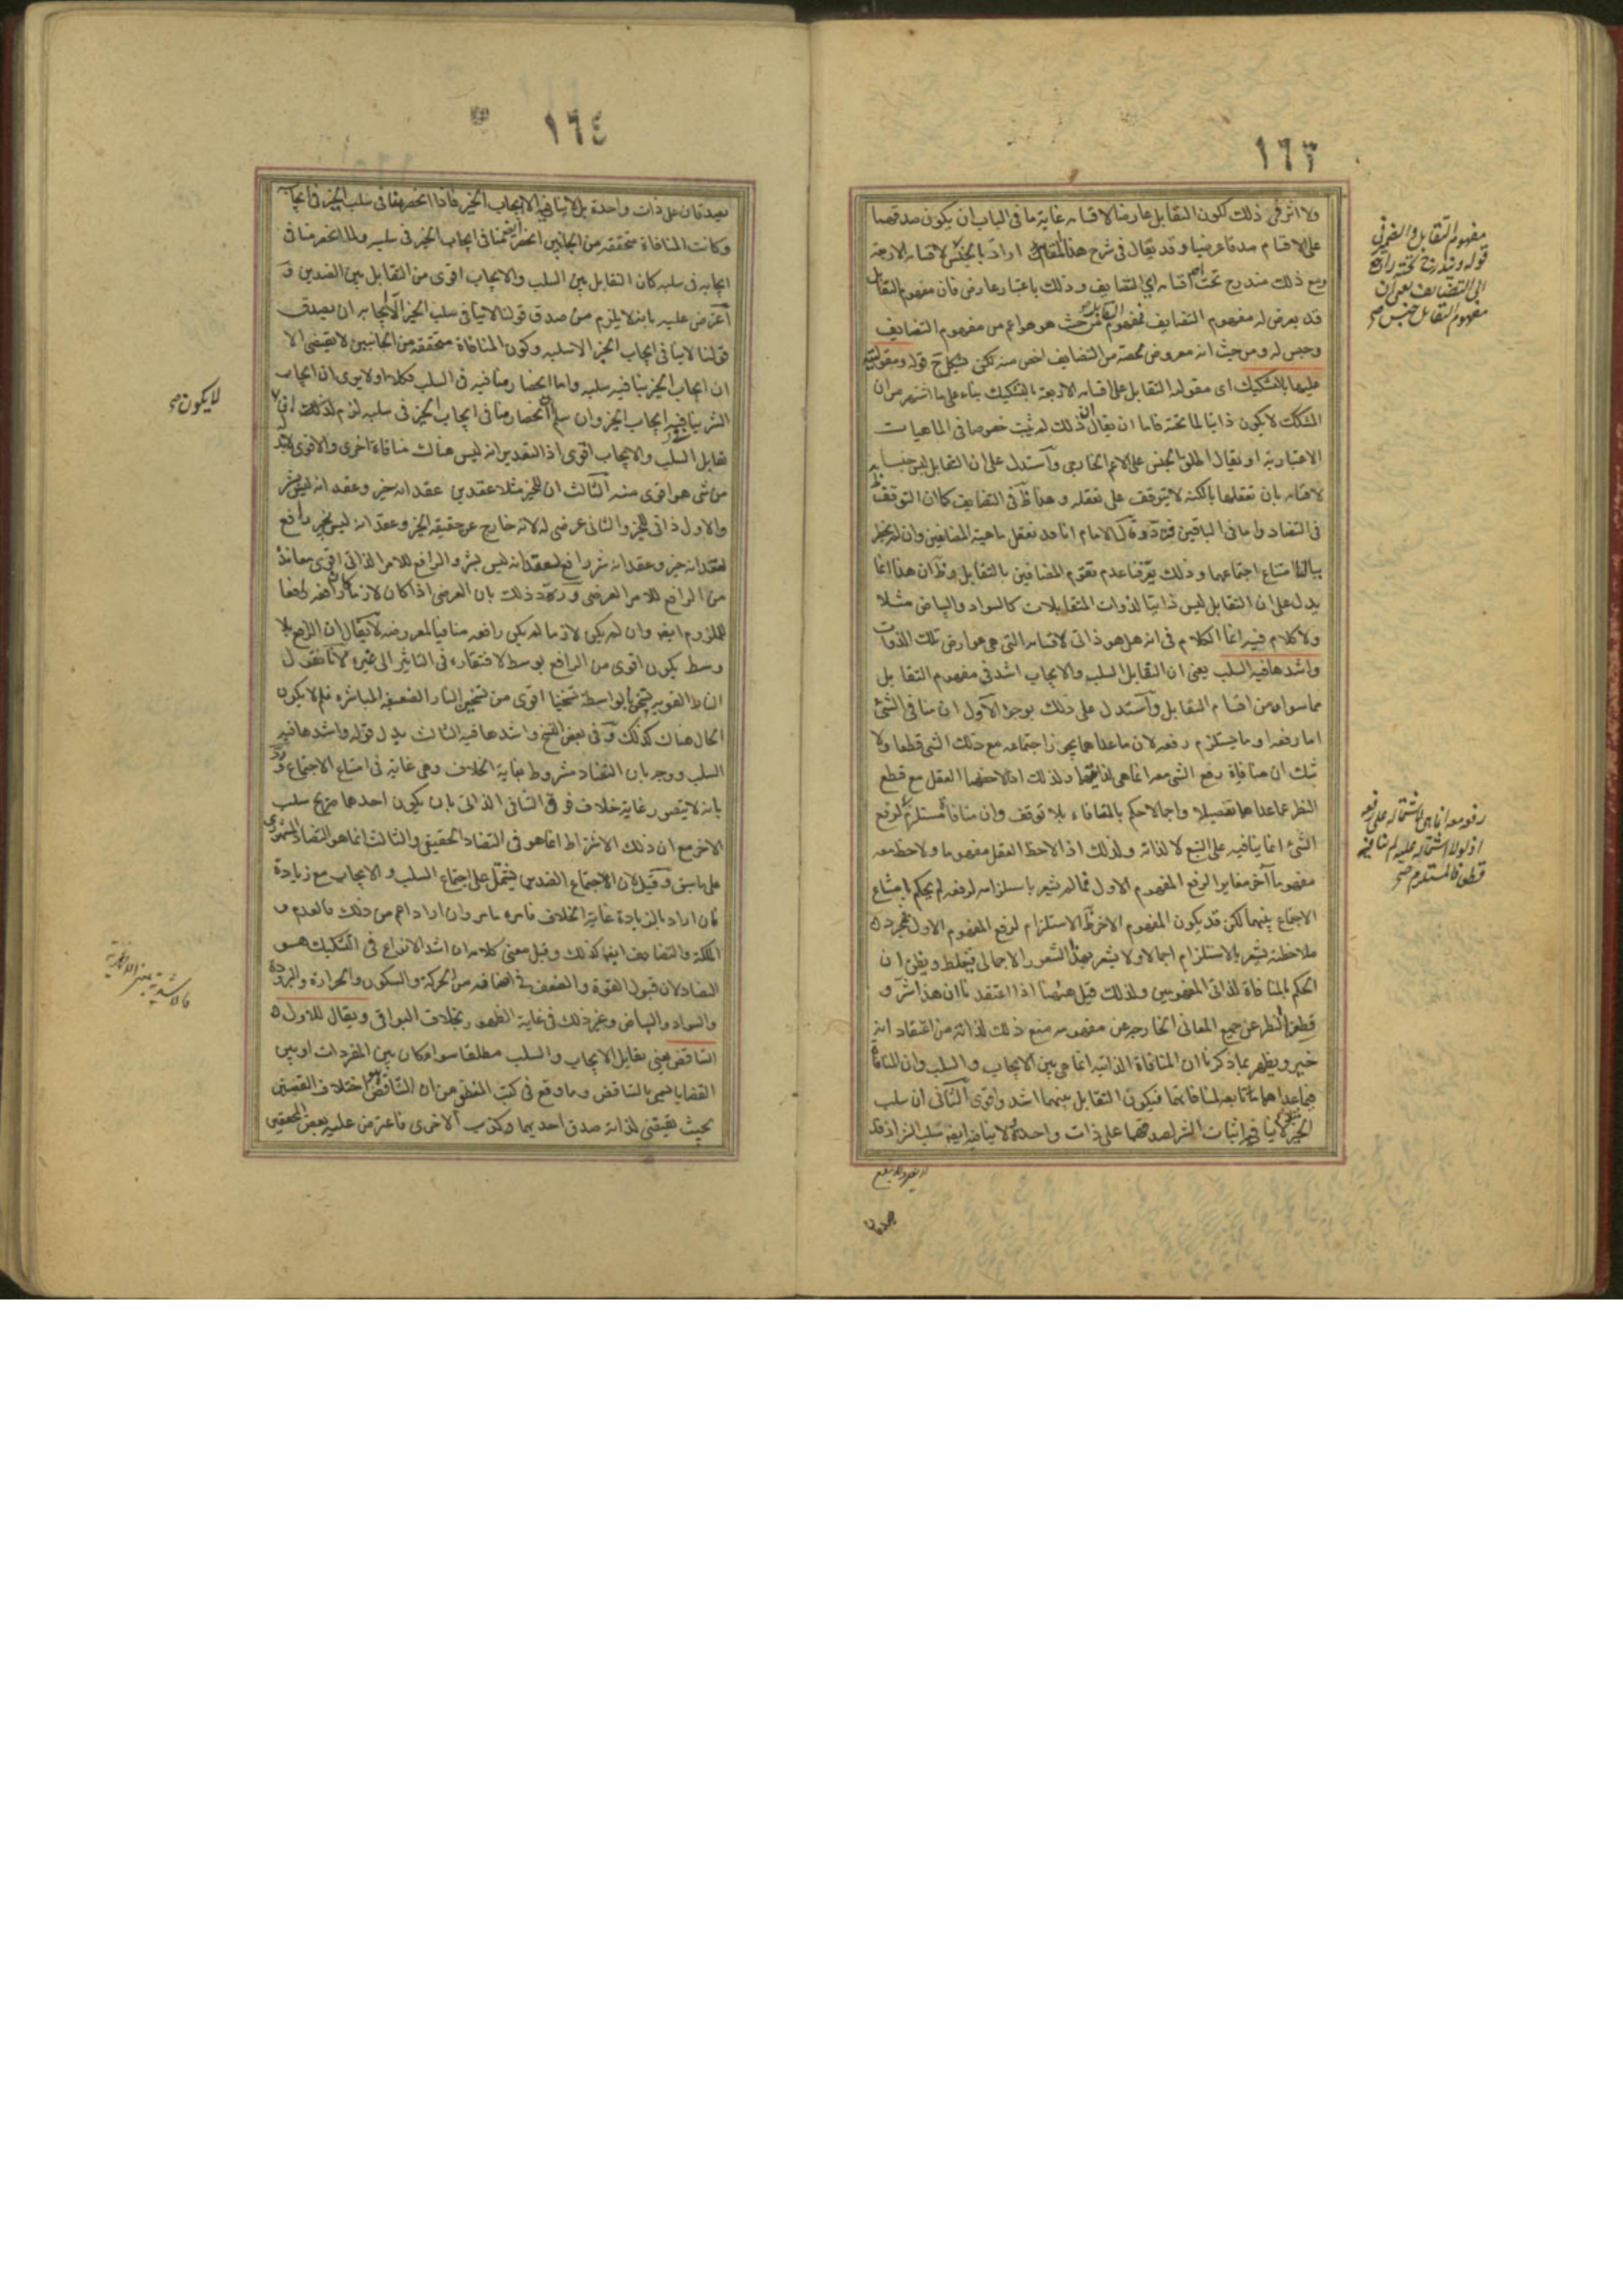 ١٦٣
ولا اثر فى ذلك لكون التقابل عارضا لاقسامه غاية ما فى الباب ان يكون صدقهما
على الاقسام صدقا عرضيا وقد يقال فى شرح هذا المقام اراد بالجنس لاقسامه الاربعة
ومع ذلك مندرج تحت احد اقسامه اى التضايف وذلك باعتبار عارض فان مفهوم التقابل
قد يعرض له مفهوم التضايف فمفهوم التقابل من حيث هو هو اعم من مفهوم التضايف
وجنس له ومن حيث انه معروض لحصة من التضايف اخص منه لكن يشكل ح قوله ومقوليته
عليها بالتشكيك اى مقولية التقابل على اقسامه الاربعة بالتشكيك بناء على ما اشتهر من ان
المشكك لا يكون ذاتيا لما تحته فاما ان يقال ان ذلك لم يثبت خصوصا فى الماهيات
الاعتبارية او يقال اطلق الجنس على الاعم الخارجى واستدل على ان التقابل ليس جنسا
لاقسامه بان تعقلها بالكنه لا يتوقف على تعقله وهذا ظ فى التضايف كما ان التوقف ظ
فى التضاد واما فى الباقين ففيه تردد قال الامام انا قد نعقل ماهية المضافين وان لم يخطر
ببالنا امتناع اجتماعهما وذلك يعرفنا عدم تقوم المضافين بالتقابل وظ ان هذا انما
يدل على ان التقابل ليس ذاتيا لذوات المتقابلات كالسواد والبياض مثلا
ولا كلام فيه انما الكلام فى انه هل هو ذاتى لاقسامه التى هى عوارض تلك الذوات
واشدها فيه السلب يعنى ان التقابل السلب والايجاب اشد فى مفهوم التقابل
مما سواه من اقسام التقابل واستدل على ذلك بوجوه الاول ان منافى الشئ
اما رفعه او ما يستلزم رفعه لان ما عداهما يجوز اجتماعه مع ذلك الشئ قطعا ولا
شك ان منافاة رفع الشئ معه انما هى لذاتيهما ولذلك اذا لاحظهما العقل مع قطع
النظر عما عداهما تفصيلا واجمالا حكم بالمنافاة بلا توقف وان منافاة مستلزم لرفع
الشئ انما ينافيه على التبع لا لذاته ولذلك اذا لاحظ العقل مفهوما ولاحظ معه
مفهوما آخر مغايرا لرفع المفهوم الاول فما لم يشعر باستلزامه لرفعه لم يحكم بامتناع
الاجتماع بينهما لكن قد يكون المفهوم الاخر ظ الاستلزام لرفع المفهوم الاول فمجرد
ملاحظته يشعر بالاستلزام اجمالا ولا يشعر بهذا الشعور الاجمالى فيغلط ويظن ان
الحكم بالمنافاة لذاتى المفهومين ولذلك قيل هيهنا اذا اعتقدنا ان هذا شر و
قطع النظر عن جميع المعانى الخارجة عن مفهومه منع ذلك لذاته من اعتقاد انه
خير ويظهر بما ذكرنا ان المنافاة الذاتية انما هى بين الايجاب والسلب وان المنافاة
فيما عداهما تابعة لمنافاتهما فيكون التقابل بينهما اشد واقوى الثانى ان سلب
الخير لا ينافى اثبات الشر لصدقهما على ذات واحدة ولا ينافيه ايضا سلب الشر اذ قد
يصدقان
مفهوم التقابل والضمير فى
قوله ويندرج تحته راجع
الى التضايف يعنى ان
مفهوم التقابل جنس صح
رفعه معه انما هى لاشتماله على رفعه
اذ لولا اشتماله عليه لم ينافيه
قطعا فالمستلزم صح
١٦٤
يصدقان على ذات واحدة بل لا ينافيه الا ايجاب الخير فاذا انحصر منافى سلب الخير فى ايجابه
وكانت المنافاة متحققة من الجانبين انحصر ايضا منافى ايجاب الخير فى سلبه ولما انحصر منافى
ايجابه فى سلبه كان التقابل بين السلب والايجاب اقوى من التقابل بين الضدين وقد
اعترض عليه بانه لا يلزم من صدق قولنا لا ينافى سلب الخير الا ايجابه ان يصدق
قولنا لا ينافى ايجاب الخير الا سلبه وكون المنافاة متحققة من الجانبين لا يقتضى الا
ان ايجاب الخير ينافيه سلبه واما انحصار منافيه فى السلب فكلا او لا يرى ان ايجاب
الشر ينافيه ايجاب الخير وان سلم انحصار منافى ايجاب الخير فى سلبه لزم لذلك ان
تقابل السلب والايجاب اقوى اذ التقدير انه ليس هناك منافاة اخرى والاقوى لابد
من شئ هو اقوى منه الثالث ان للخير مثلا عقدين عقد انه خير وعقد انه ليس بشر
والاول ذاتى للخير والثانى عرضى له لانه خارج عن حقيقة الخير وعقد انه ليس بخير رافع
لعقد انه خير وعقد انه شر رافع لعقد انه ليس بشر والرافع للامر الذاتى اقوى معاندة
من الرافع للامر العرضى ورد ذلك بان العرضى اذا كان لازما كان رافعه رافعا
للملزوم ايضا وان لم يكن لازما لم يكن رافعه منافيا لمعروضه لا يقال ان الرافع بلا
وسط يكون اقوى من الرافع بوسط لافتقاره فى التاثير الى غيره لانا نقول
النار القوية يتسخن بواسطة تسخينا اقوى من تسخين النار الضعيفة المباشرة فلم لا يكون
الحال هناك كذلك وفى بعض النسخ واشدها فيه الثالث بدل قوله واشدها فيه
السلب ووجه بان التضاد مشروط بغاية الخلاف وهى غاية فى امتناع الاجتماع ورد
بانه لا يتصور غاية خلاف فوق التنافى الذاتى بان يكون احدهما صريح سلب
الاخر مع ان ذلك الاشتراط انما هو فى التضاد الحقيقى والثالث انما هو التضاد المشهورى
على ما سبق وقيل لان الاجتماع الضدين يشتمل على اجتماع السلب والايجاب مع زيادة
فان اراد بالزيادة غاية الخلاف فامره ما مر وان اراد اعم من ذلك فالعدم و
الملكة والتضايف ايضا كذلك وقيل معنى كلامه ان اشد الانواع فى التشكيك هو
التضاد لان قبول القوة والضعف فى اصنافه من الحركة والسكون والحرارة والبرودة
والسواد والبياض وغير ذلك فى غاية الظهور بخلاف البواقى ويقال للاول
التناقض يعنى تقابل الايجاب والسلب مطلقا سواء كان بين المفردات او بين
القضايا يسمى بالتناقض وما وقع فى كتب المنطق من ان التناقض هو اختلاف القضيتين
بحيث يقتضى لذاته صدق احديهما وكذب الاخرى فاعترض عليه بعض المحققين
لا يكون صح